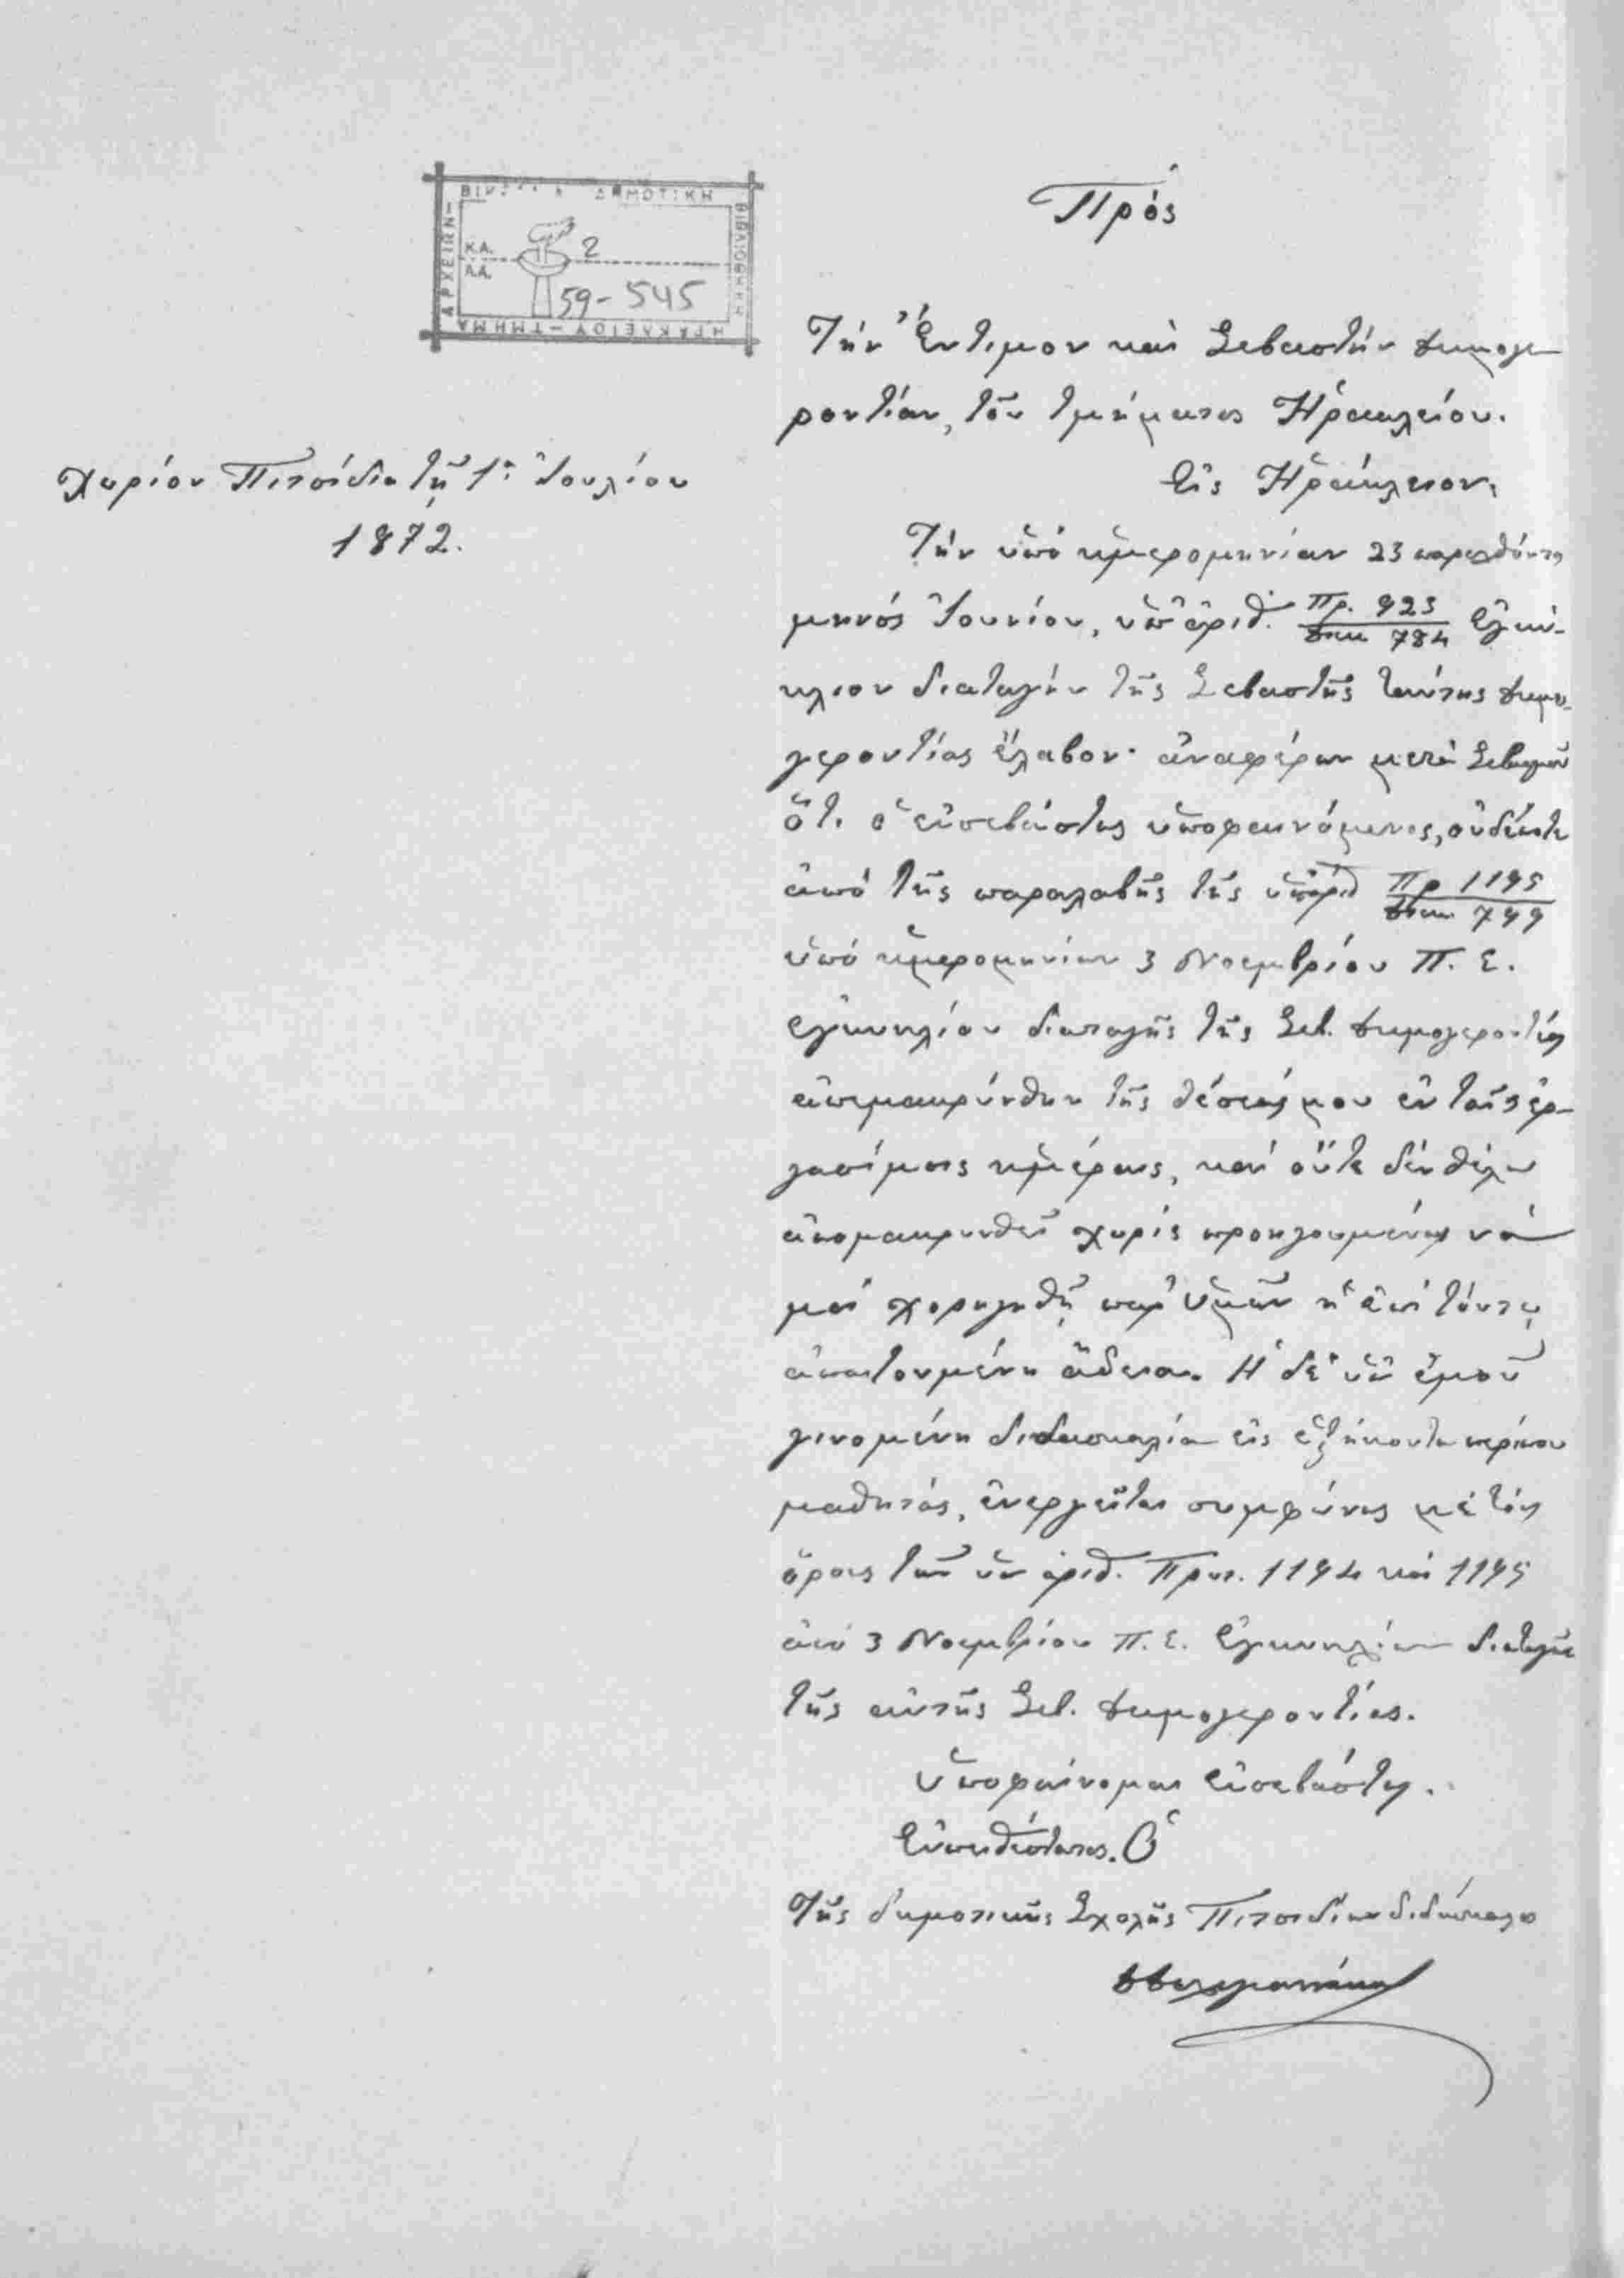 ΒΙΚΕΛΑΙΑ ΔΗΜΟΤΙΚΗ
ΒΙΒΛΙΟΘΗΚΗ
ΗΡΑΚΛΕΙΟΥ - ΤΜΗΜΑ
ΑΡΧΕΙΩΝ
Κ.Α. 2
Α.Α. 59-545
Χωρίον Πιτσίδια τῇ 1ῃ Ἰουλίου
1872.
Πρὸς
Τὴν Ἔντιμον καὶ Σεβαστὴν Δημογε-
ροντίαν, τοῦ τμήματος Ἡρακλείου.
Εἰς Ἡράκλειον.
Τὴν ὑπὸ ἡμερομηνίαν 23 παρελθόντος
μηνὸς Ἰουνίου, ὑπ' ἀριθ. Πρ. 923 / Διεκ 784 ἐγκύ-
κλιον διαταγὴν τῆς Σεβαστῆς ταύτης Δημο-
γεροντίας ἔλαβον· ἀναφέρων μετὰ Σεβασμοῦ
ὅτι ὁ εὐσεβάστως ὑποφαινόμενος, οὐδέποτε
ἀπὸ τῆς παραλαβῆς τῆς ὑπ' ἀριθ Πρ 1195 / Διεκ 799
ὑπὸ ἡμερομηνίαν 3 Νοεμβρίου Π. Ε.
ἐγκυκλίου διαταγῆς τῆς Σεβ. Δημογεροντίας
ἀπεμακρύνθην τῆς θέσεώς μου ἐν ταῖς ἐρ-
γασίμοις ἡμέραις, καὶ οὔτε δὲν θέλω
ἀπομακρυνθεῖ χωρὶς προηγουμένως νὰ
μοὶ χορηγηθῇ παρ' ὑμῶν ἡ ἐπὶ τούτῳ
ἀπαιτουμένη ἄδεια. Ἡ δὲ ὑπ' ἐμοῦ
γινομένη διδασκαλία εἰς ἑξήκοντα περίπου
μαθητάς, ἐνεργεῖται συμφώνως μὲ τοὺς
ὅρους τῶν ὑπ' ἀριθ. Πρωτ. 1194 καὶ 1195
ἀπὸ 3 Νοεμβρίου Π. Ε. Ἐγκυκλίων διαταγῶν
τῆς αὐτῆς Σεβ. Δημογεροντίας.
Ὑποφαίνομαι εὐσεβάστως.
Εὐπειθέστατος. Ὁ
Τῆς δημοτικῆς Σχολῆς Πιτσιδίων διδάσκαλος